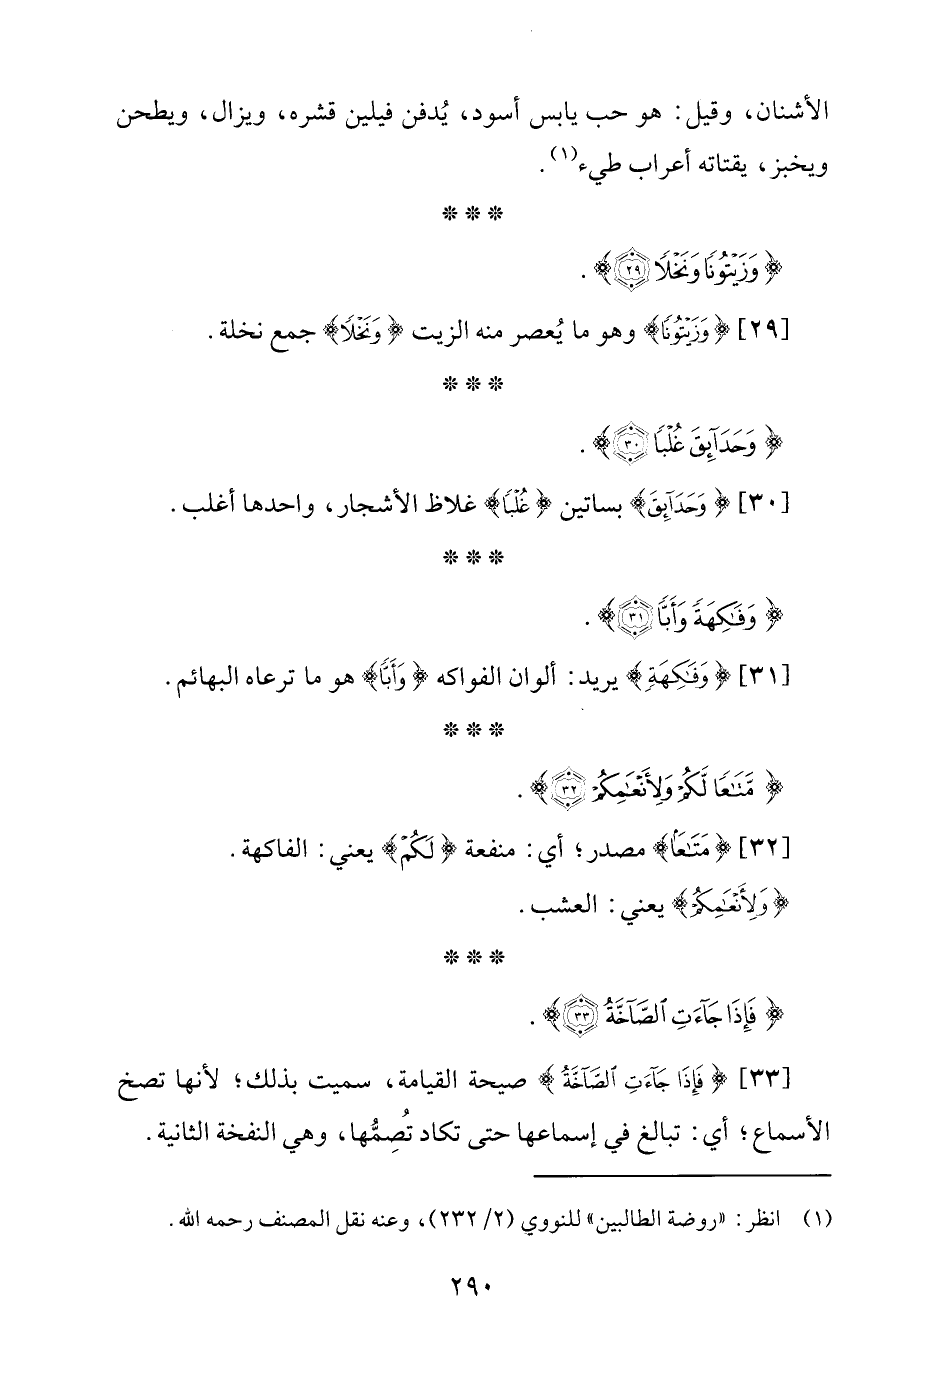 الأشنان، وقيل: هو حب يابس أسود، يُدفن فيلين قشره، ويزال، ويطحن
ويخبز، يقتاته أعراب طيء(١).
* * *
﴿ وَزَيْتُونًا وَنَخْلًا ٢٩﴾ .
[٢٩] ﴿وَزَيْتُونًا﴾ وهو ما يُعصر منه الزيت ﴿وَنَخْلًا﴾ جمع نخلة.
* * *
﴿ وَحَدَآئِقَ غُلْبًا ٣٠﴾ .
[٣٠] ﴿وَحَدَآئِقَ﴾ بساتين ﴿غُلْبًا﴾ غلاظ الأشجار، واحدها أغلب.
* * *
﴿ وَفَٰكِهَةً وَأَبًّا ٣١﴾ .
[٣١] ﴿وَفَٰكِهَةً﴾ يريد: ألوان الفواكه ﴿وَأَبًّا﴾ هو ما ترعاه البهائم.
* * *
﴿ مَّتَٰعًا لَّكُمْ وَلِأَنْعَٰمِكُمْ ٣٢﴾ .
[٣٢] ﴿مَتَٰعًا﴾ مصدر؛ أي: منفعة ﴿لَكُمْ﴾ يعني: الفاكهة.
﴿وَلِأَنْعَٰمِكُمْ﴾ يعني: العشب.
* * *
﴿ فَإِذَا جَآءَتِ ٱلصَّآخَّةُ ٣٣﴾ .
[٣٣] ﴿فَإِذَا جَآءَتِ ٱلصَّآخَّةُ﴾ صيحة القيامة، سميت بذلك؛ لأنها تصخ
الأسماع؛ أي: تبالغ في إسماعها حتى تكاد تُصِمُّها، وهي النفخة الثانية.
(١) انظر: «روضة الطالبين» للنووي (٢/ ٢٣٢)، وعنه نقل المصنف رحمه الله.
٢٩٠